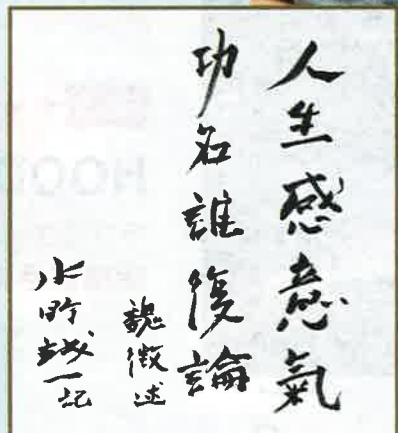 人生感意氣
功名誰復論
魏徴述
水野誠一記